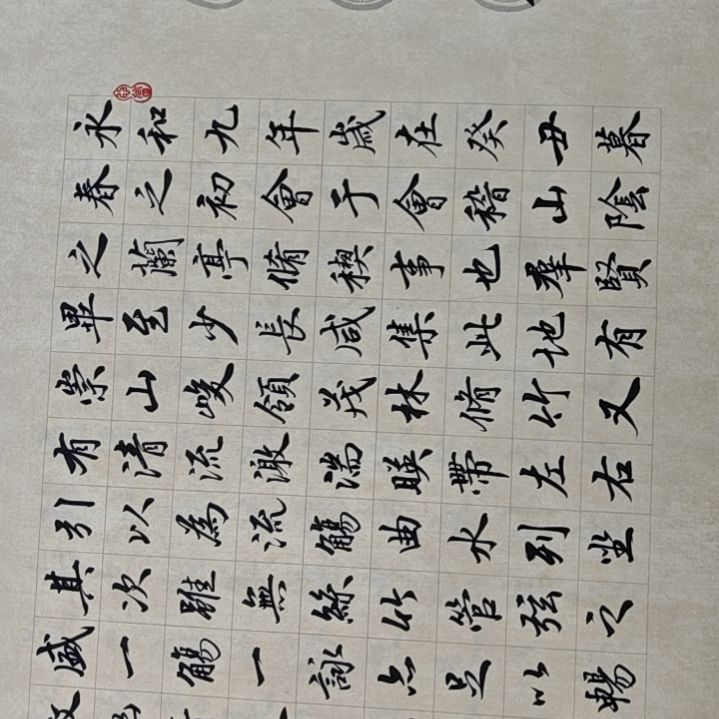 永和九年歲在癸丑暮
春之初會于會稽山陰
之蘭亭脩稧事也羣賢
畢至少長咸集此地有
崇山峻領茂林脩竹又
有清流激湍暎帶左右
引以為流觴曲水列坐
其次雖無絲竹管弦之
盛一觴一詠亦足以暢